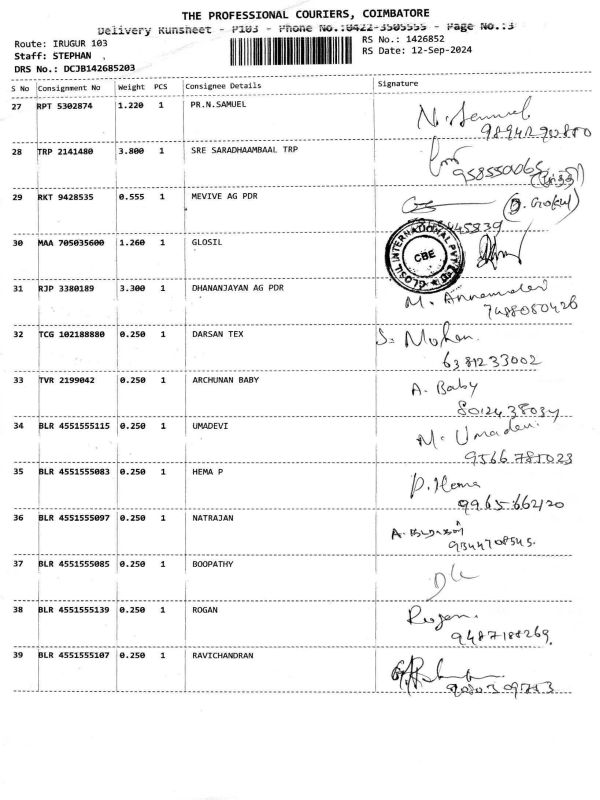 THE PROFESSIONAL COURIERS, COIMBATORE
Delivery Runsheet - P103 - Phone No.:0422-3505555 - Page No.:3
Route: IRUGUR 103
Staff: STEPHAN
DRS No.: DCJB142685203
RS No.: 1426852
RS Date: 12-Sep-2024
S No Consignment No Weight PCS Consignee Details Signature
27 RPT 5302874 1.220 1 PR.N.SAMUEL
N. Samuel
28 TRP 2141480 3.800 1 SRE SARADHAAMBAAL TRP
958550065
29 RKT 9428535 0.555 1 MEVIVE AG PDR
(D. Gokul)
30 MAA 705035600 1.260 1 GLOSIL
GLOSIL INTERNATIONAL PVT LTD
CBE
31 RJP 3380189 3.300 1 DHANANJAYAN AG PDR
M. Annamalai
7488080426
32 TCG 102188880 0.250 1 DARSAN TEX
S. Mohan
6381233002
33 TVR 2199042 0.250 1 ARCHUNAN BABY
A. Baby
8012438034
34 BLR 4551555115 0.250 1 UMADEVI
M. Umadevi
9566785023
35 BLR 4551555083 0.250 1 HEMA P
P. Hema
9965662120
36 BLR 4551555097 0.250 1 NATRAJAN
9344708545.
37 BLR 4551555085 0.250 1 BOOPATHY
38 BLR 4551555139 0.250 1 ROGAN
Rogan.
9487188269.
39 BLR 4551555107 0.250 1 RAVICHANDRAN